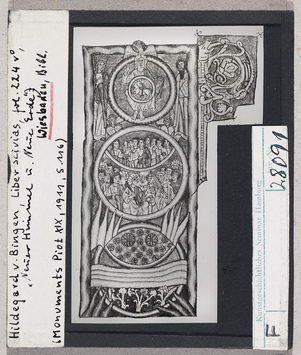 Hildegard v. Bingen, Liber scivias fol. 224 v°,
„Neuer Himmel u. Neue Erde"
Wiesbaden, Bibl.
(Monuments Piot XIX, 1911, S. 116)
28091
Kunstgeschichtliches Seminar Hamburg
F